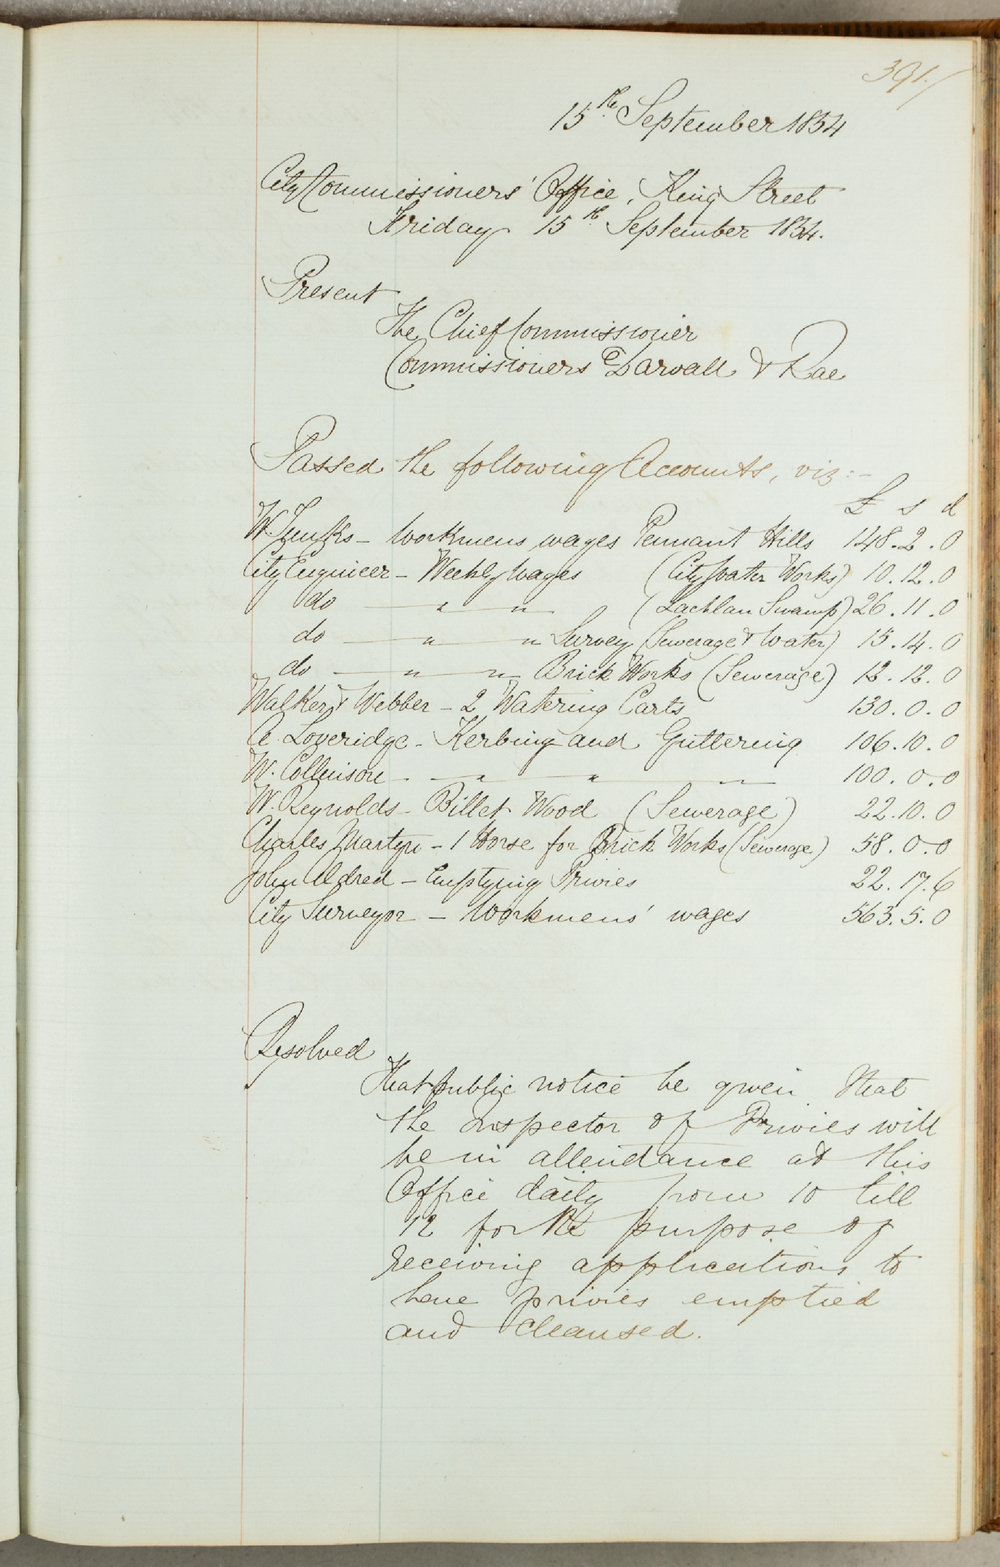 391./
15th September 1854
City Commissioners' Office, King Street
Friday 15th September 1854.
Present
The Chief Commissioner
Commissioners Darvall & Rae
Passed the following Accounts, viz:-
£ s d
W. Jenks - Workmens wages Pennant Hills 148.2.0
City Engineer - Weekly Wages (City Water Works) 10.12.0
do — " — " (Lachlan Swamp) 26.11.0
do — " — " Survey (Sewerage & Water) 15.14.0
do — " — " Brick Works (Sewerage) 12.12.0
Walker & Webber - 2 Watering Carts 130.0.0
C. Loveridge - Kerbing and Guttering 106.10.0
W. Collinson - — " — " — " 100.0.0
W. Reynolds - Billet Wood (Sewerage) 22.10.0
Charles Martyn - 1 Horse for Brick Works (Sewerage) 58.0.0
John Aldred - Emptying Privies 22.17.6
City Surveyor - Workmens' wages 563.5.0
Resolved
That public notice be given that
the Inspector of Privies will
be in attendance at this
Office daily from 10 till
12 for the purpose of
receiving applications to
have privies emptied
and cleansed.